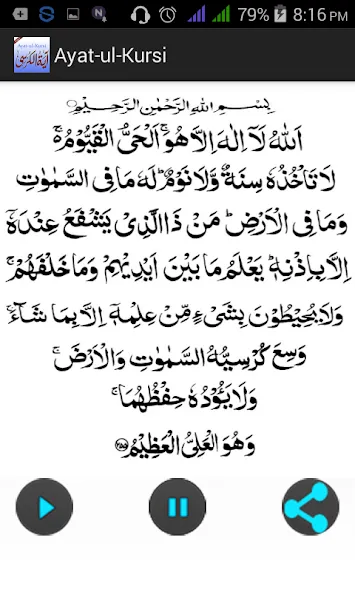 79% 8:16 PM
Ayat-ul-Kursi
بِسْمِ اللهِ الرَّحْمٰنِ الرَّحِيْمِ
اَللهُ لَآ اِلٰهَ اِلَّا هُوَ ۚ اَلْحَىُّ الْقَيُّوْمُ ۚ
لَا تَاْخُذُهٗ سِنَةٌ وَّلَا نَوْمٌ ؕ لَهٗ مَا فِى السَّمٰوٰتِ
وَمَا فِى الْاَرْضِ ؕ مَنْ ذَا الَّذِىْ يَشْفَعُ عِنْدَهٗۤ
اِلَّا بِاِذْنِهٖ ؕ يَعْلَمُ مَا بَيْنَ اَيْدِيْهِمْ وَمَا خَلْفَهُمْ ۚ
وَلَا يُحِيْطُوْنَ بِشَىْءٍ مِّنْ عِلْمِهٖۤ اِلَّا بِمَا شَآءَ ۚ
وَسِعَ كُرْسِيُّهُ السَّمٰوٰتِ وَالْاَرْضَ ۚ
وَلَا يَـُٔوْدُهٗ حِفْظُهُمَا ۚ
وَهُوَ الْعَلِىُّ الْعَظِيْمُ ﴿۲۵۵﴾